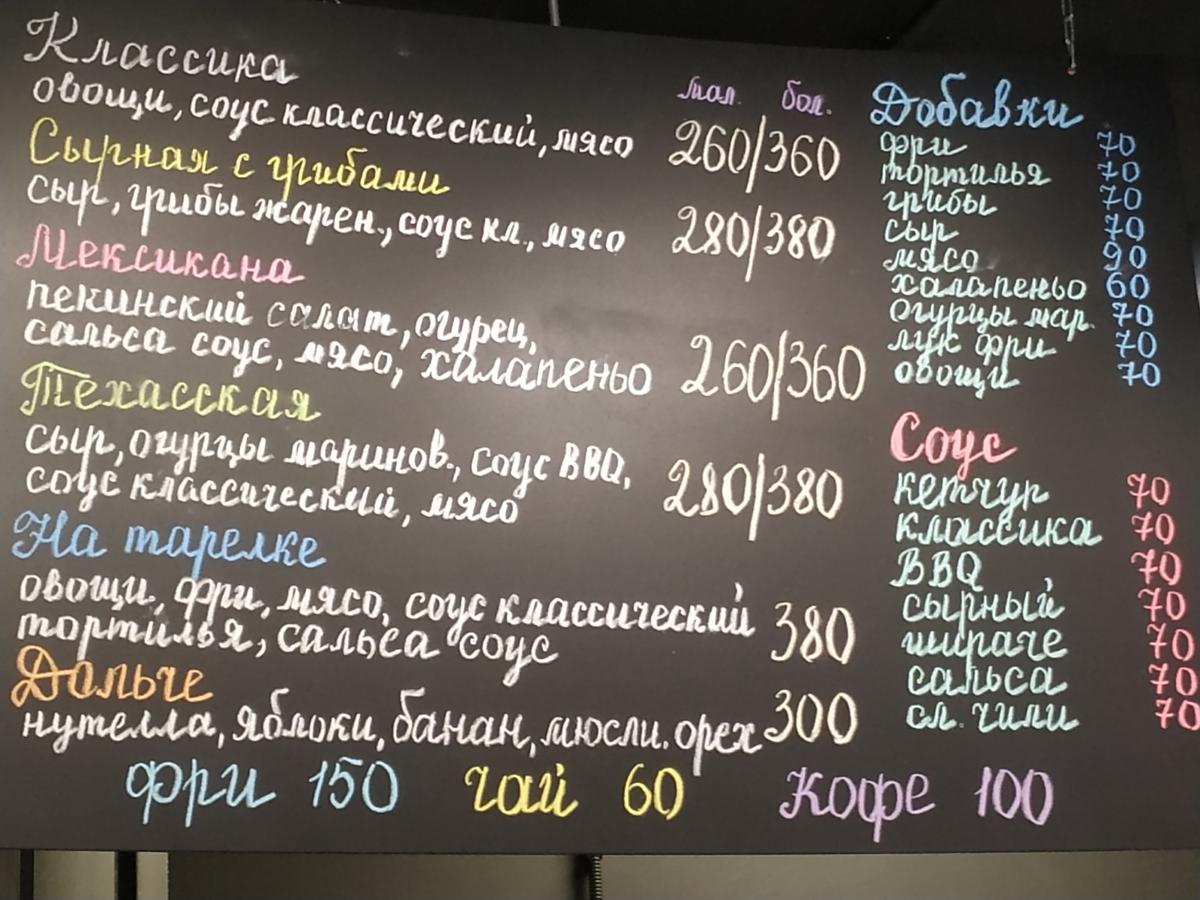 Классика
мал. бол.
овощи, соус классический, мясо 260/360
Сырная с грибами
сыр, грибы жарен., соус кл., мясо 280/380
Мексикана
пекинский салат, огурец,
сальса соус, мясо, халапеньо 260/360
Техасская
сыр, огурцы маринов., соус BBQ,
соус классический, мясо 280/380
На тарелке
овощи, фри, мясо, соус классический
тортилья, сальса соус 380
Дольче
нутелла, яблоки, банан, мюсли. орех 300
Добавки
фри 70
тортилья 70
грибы 70
сыр 70
мясо 90
халапеньо 60
огурцы мар. 70
лук фри 70
овощи 70
Соус
кетчуп 70
классика 70
BBQ 70
сырный 70
шираче 70
сальса 70
сл. чили 70
фри 150 чай 60 кофе 100